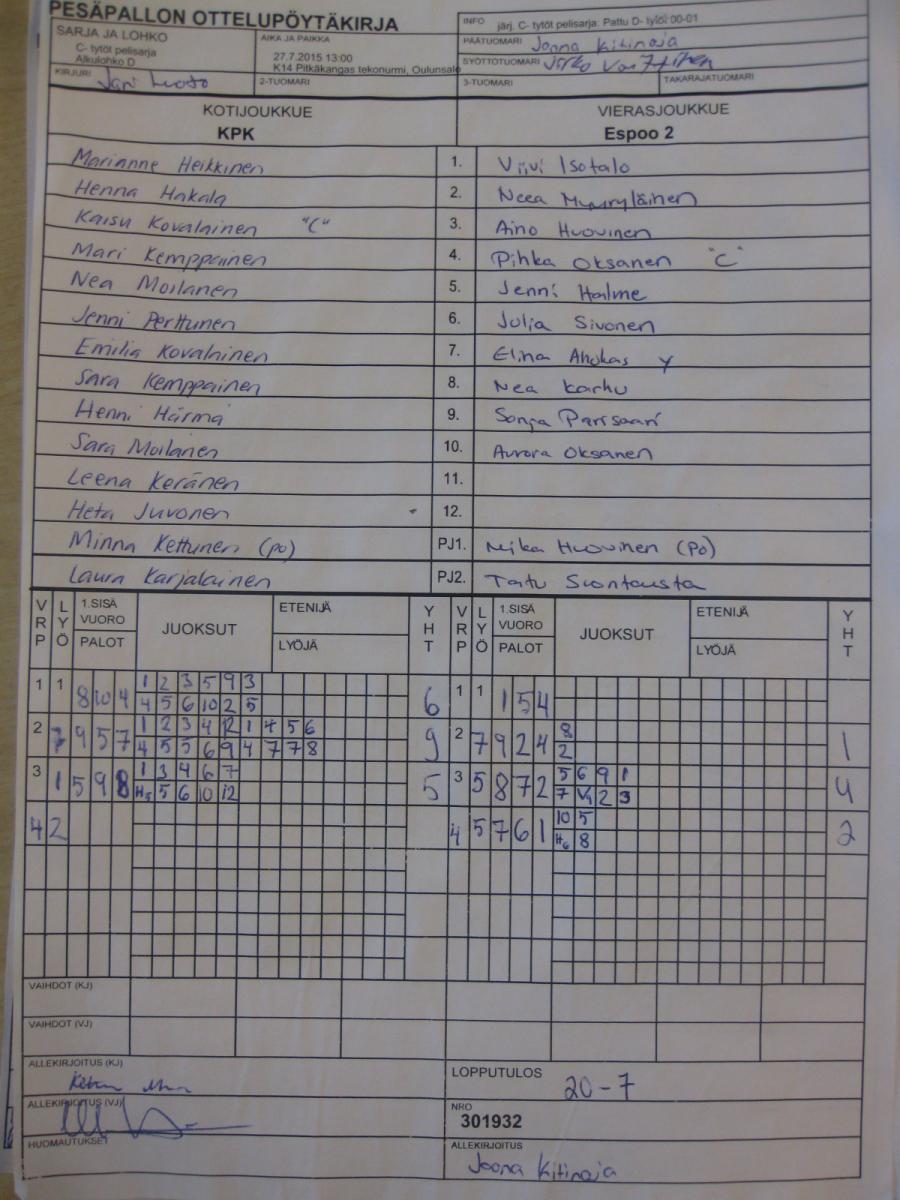 PESÄPALLON OTTELUPÖYTÄKIRJA
INFO järj. C- tytöt pelisarja: Pattu D- tytöt 00-01
SARJA JA LOHKO
C- tytöt pelisarja
Alkulohko D
AIKA JA PAIKKA
27.7.2015 13:00
K14 Pitkäkangas tekonurmi, Oulunsalo
PÄÄTUOMARI Joona Kitinoja
SYÖTTÖTUOMARI
KIRJURI Jari Luoto
2-TUOMARI
3-TUOMARI
TAKARAJATUOMARI
KOTIJOUKKUE
KPK
VIERASJOUKKUE
Espoo 2
Marianne Heikkinen 1. Viivi Isotalo
Henna Hakala 2. Neea Myyryläinen
Kaisu Kovalainen "C" 3. Aino Huovinen
Mari Kemppainen 4. Pihka Oksanen "C"
Nea Moilanen 5. Jenni Halme
Jenni Perttunen 6. Julia Sivonen
Emilia Kovalainen 7. Elina Ahokas y
Sara Kemppainen 8. Nea Karhu
Henni Härmä 9. Sonja Parssaari
Sara Moilanen 10. Aurora Oksanen
Leena Keränen 11.
Heta Juvonen 12.
Minna Kettunen (po) PJ1. Mika Huovinen (po)
Laura Karjalainen PJ2. Tatu Suontausta
VRP LYÖ 1.SISÄ VUORO PALOT JUOKSUT ETENIJÄ LYÖJÄ YHT VRP LYÖ 1.SISÄ VUORO PALOT JUOKSUT ETENIJÄ LYÖJÄ YHT
1 1 8 10 4 1 2 3 5 9 3 6 1 1 1 5 4
4 5 6 10 2 5
2 7 9 5 7 1 2 3 4 12 1 4 5 6 9 2 7 9 2 4 8 1
4 5 5 6 9 4 7 7 8 2
3 1 5 9 8 1 3 4 6 7 5 3 5 8 7 2 5 6 9 1 4
H5 5 6 10 12 7 V1 2 3
4 2 4 5 7 6 1 10 5 2
H6 8
VAIHDOT (KJ)
VAIHDOT (VJ)
ALLEKIRJOITUS (KJ)
LOPPUTULOS 20-7
ALLEKIRJOITUS (VJ)
NRO
301932
HUOMAUTUKSET
ALLEKIRJOITUS
Joona Kitinoja